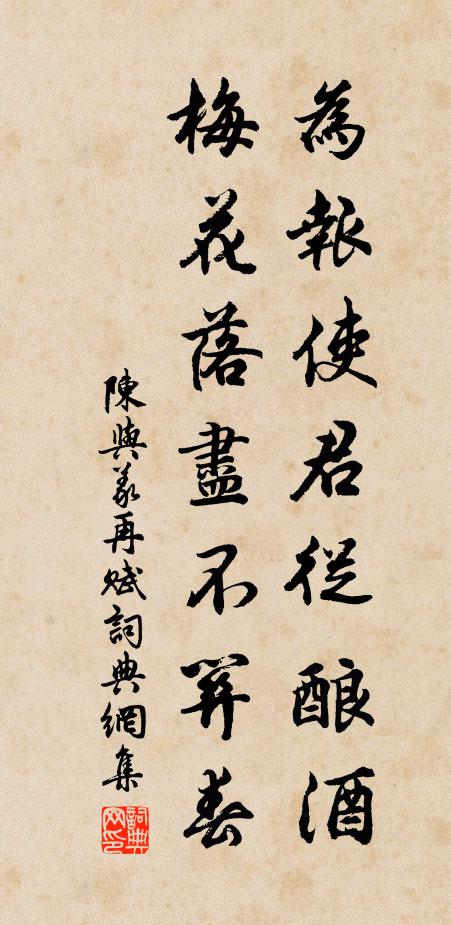 為報使君從酿酒
梅花落盡不筭春
陳與義再賦詞典網集
詞典网印